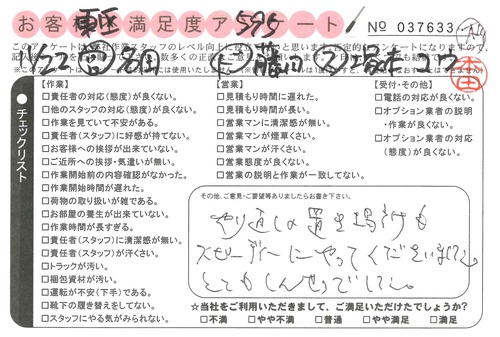 お客様満足度アンケート!
595
No 037633
チェックリスト
【作業】
□責任者の対応(態度)が良くない。
□他のスタッフの対応(態度)が良くない。
□作業を見ていて不安がある。
□責任者(スタッフ)に好感が持てない。
□お客様への挨拶が出来ていない。
□ご近所への挨拶・気遣いが無い。
□作業開始前の内容確認がなかった。
□作業開始時間が遅れた。
□荷物の取り扱いが雑である。
□お部屋の養生が出来ていない。
□作業時間が長すぎる。
□責任者(スタッフ)に清潔感が無い。
□責任者(スタッフ)が汗くさい。
□トラックが汚い。
□梱包資材が汚い。
□運転が不安(下手)である。
□靴下の履き替えをしてない。
□スタッフにやる気がみられない。
【営業】
□見積もり時間に遅れた。
□見積もり時間が長い。
□営業マンに清潔感が無い。
□営業マンが煙草くさい。
□営業マンが汗くさい。
□営業態度が良くない。
□営業の説明と作業が一致してない。
【受付・その他】
□電話の対応が良くない。
□オプション業者の説明
・作業が良くない。
□オプション業者の対応
(態度)が良くない。
その他、ご意見・ご要望等ありましたらお書き下さい。
スピーディーにやってくださいまして
とてもしんせつでした。
☆当社をご利用いただきまして、ご満足いただけたでしょうか?
□不満 □やや不満 □普通 □やや満足 □満足